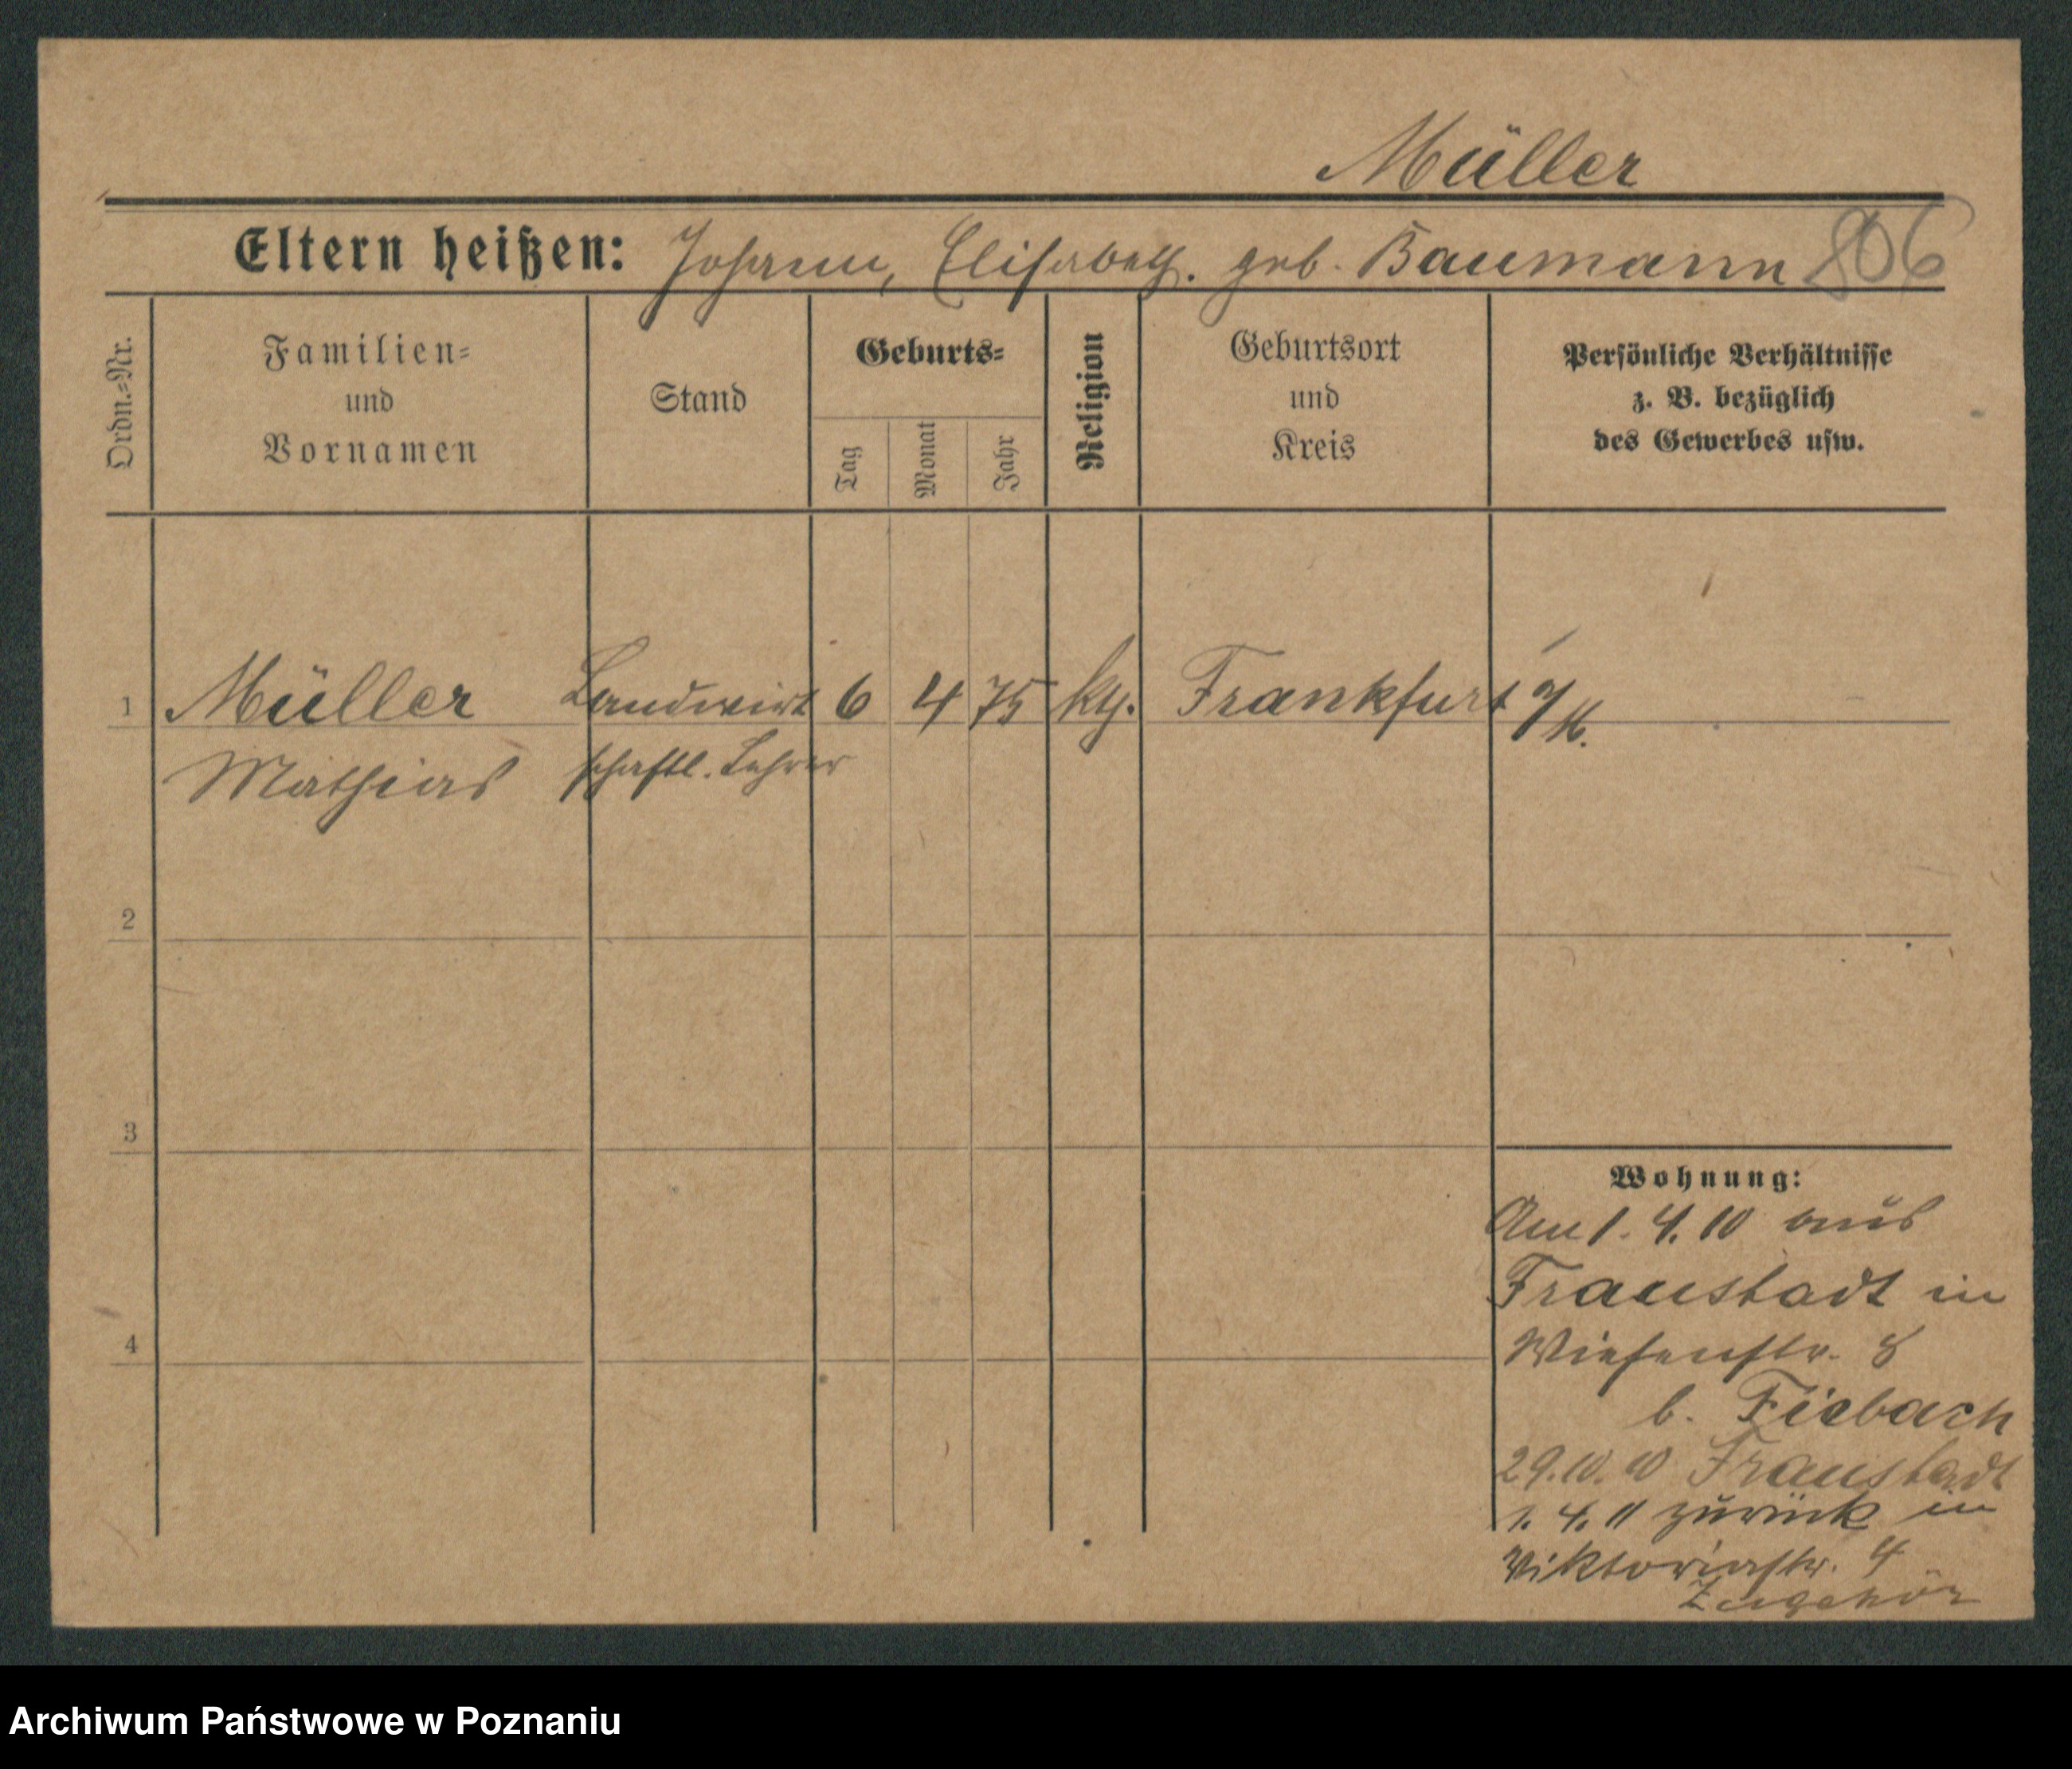 Müller
Eltern heißen: Johann, Elisabeth. geb. Baumann 806
Ordn.=Nr.
Familien=
und
Vornamen
Stand
Geburts=
Tag
Monat
Jahr
Religion
Geburtsort
und
Kreis
Persönliche Verhältnisse
z. B. bezüglich
des Gewerbes usw.
1 Müller Landwirt 6 4 75 kth. Frankfurt a/M.
Mathias schaftl. Lehrer
2
3
4
Wohnung:
Am 1. 4. 10 aus
Fraustadt in
Wiesenstr. 8
b. Fiebach
29.10.10 Fraustadt
1. 4. 11 zurück in
Viktoriastr. 4
Zugehör
Archiwum Państwowe w Poznaniu